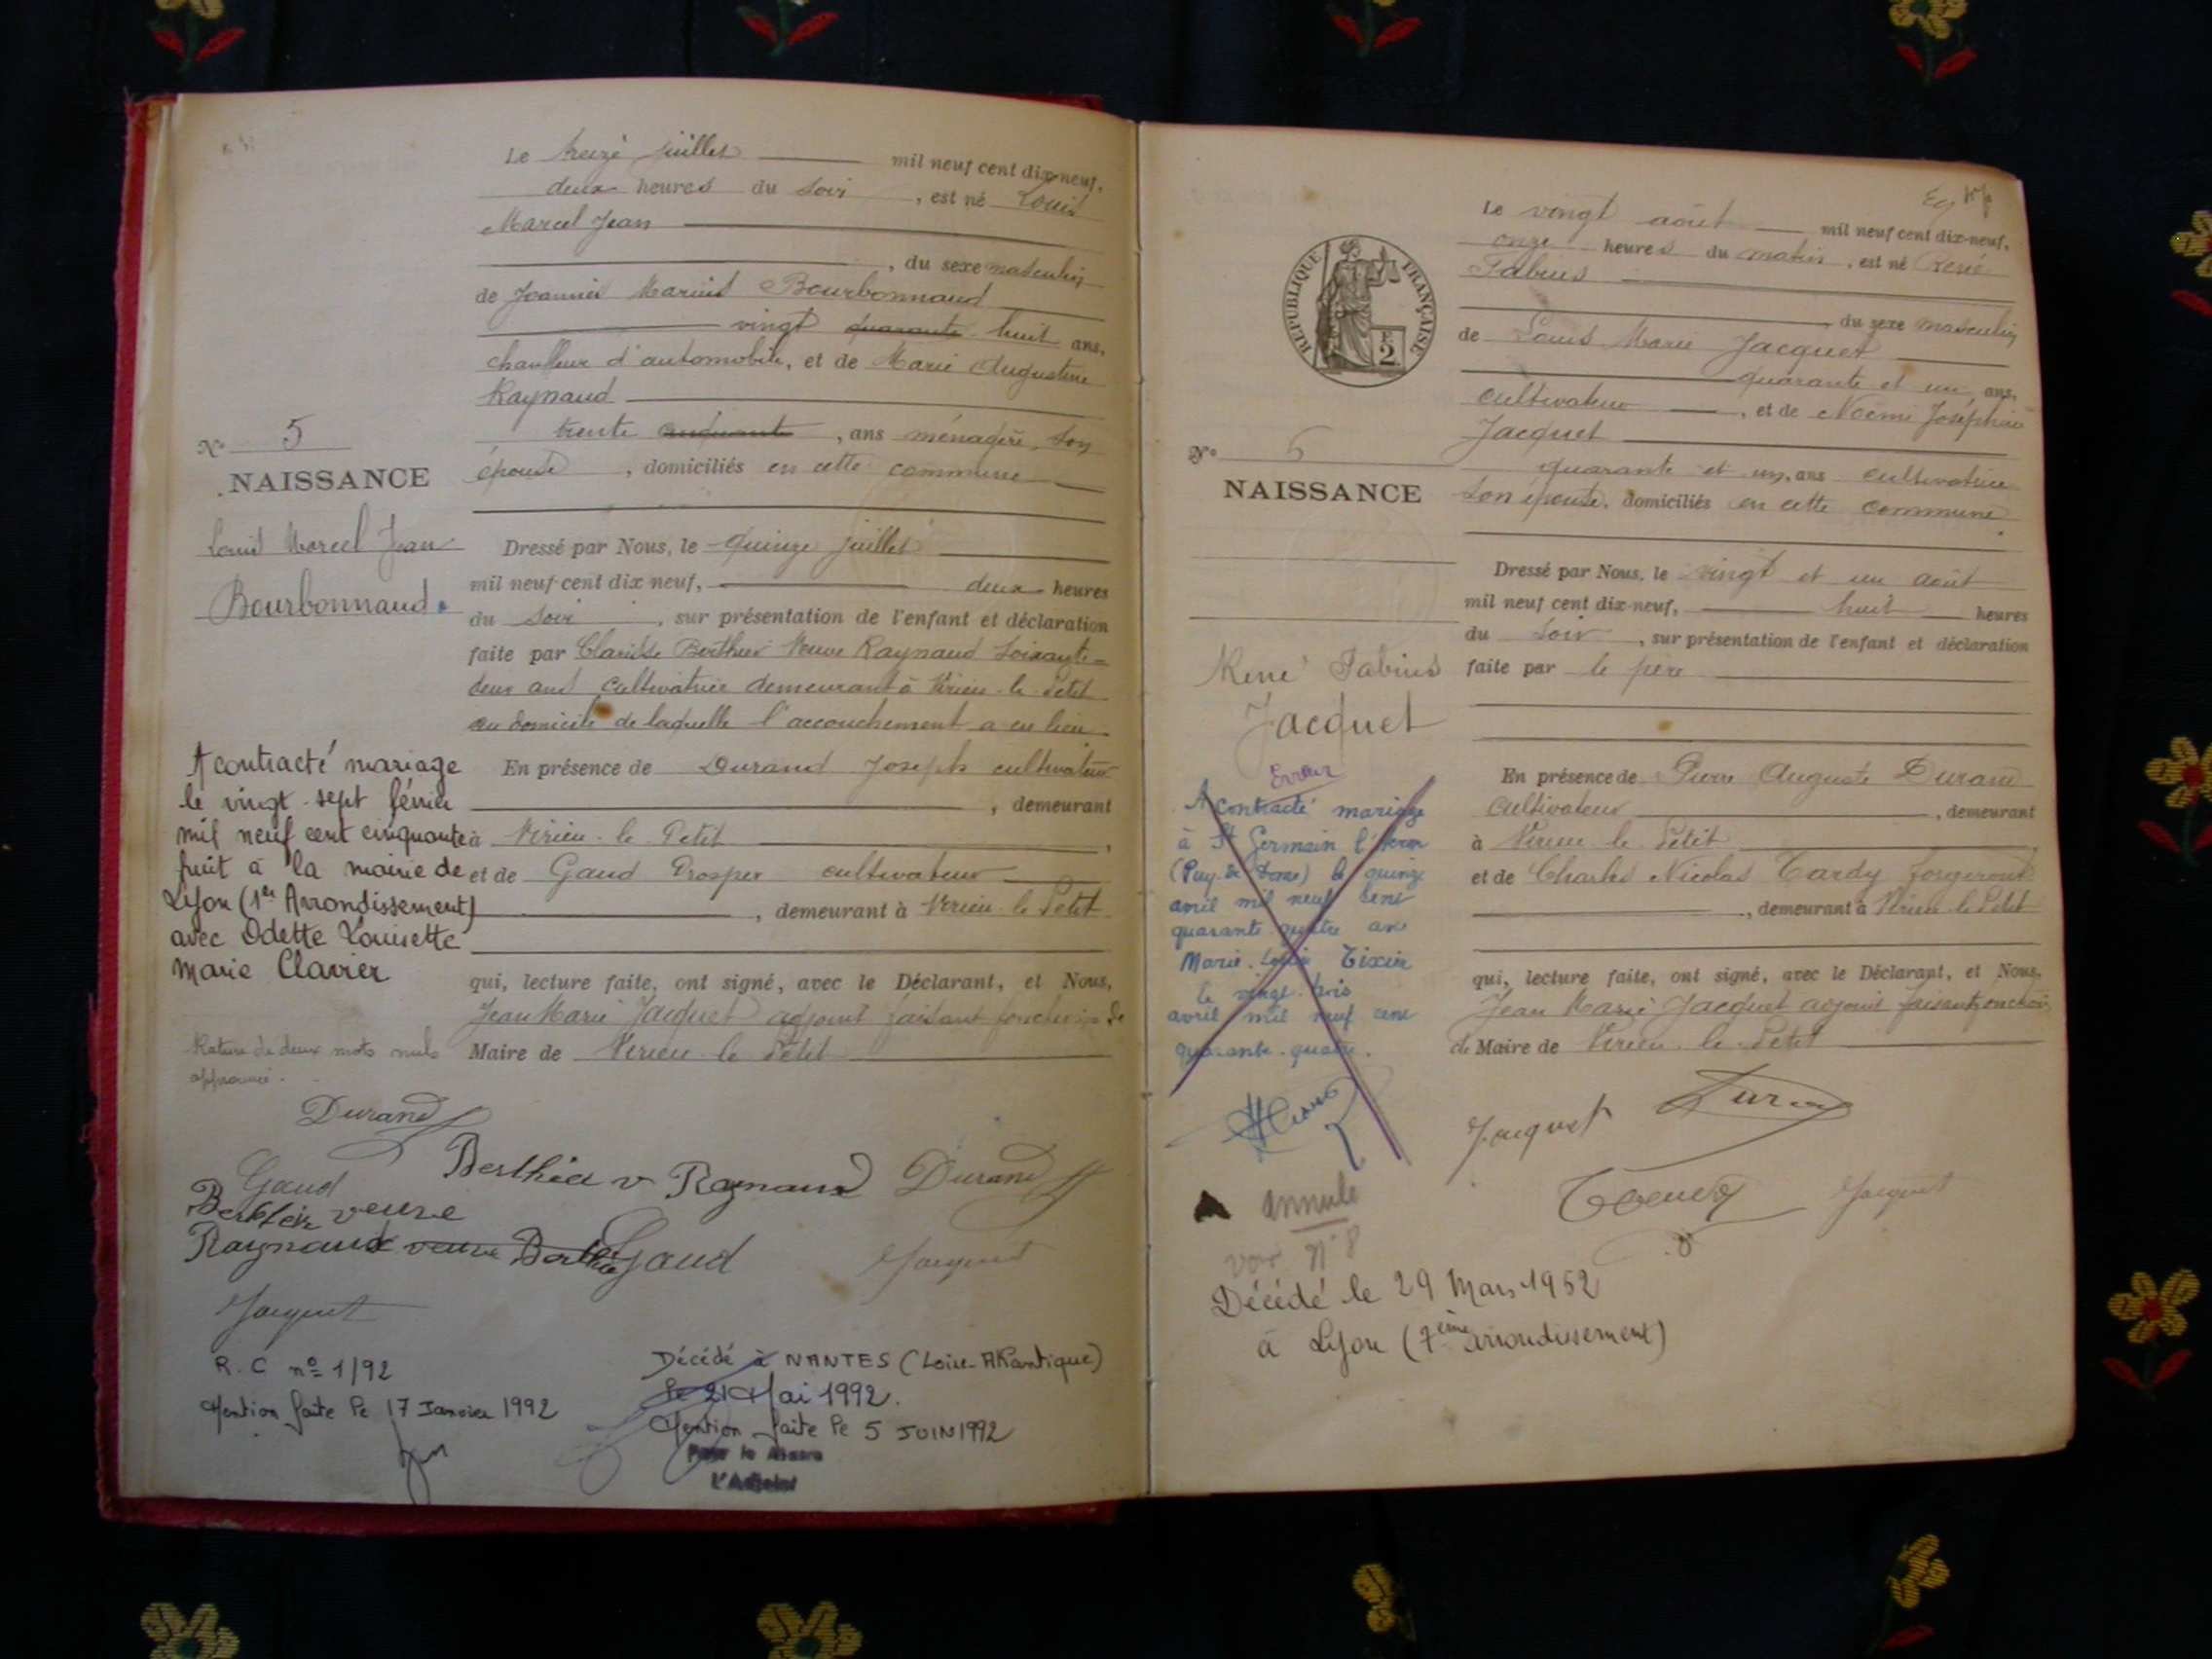 Le treize juillet mil neuf cent dix-neuf,
deux heures du soir, est né Louis
Marcel Jean
, du sexe masculin
de Joannès Marius Bourbonnaud
vingt quarante huit ans,
chauffeur d'automobile, et de Marie Augustine
Raynaud
trente cinquante, ans ménagère, son
épouse, domiciliés en cette commune
N° 5
NAISSANCE
Louis Marcel Jean
Bourbonnaud
Dressé par Nous, le quinze juillet
mil neuf cent dix-neuf, deux heures
du soir, sur présentation de l'enfant et déclaration
faite par Clarisse Berthier Veuve Raynaud soixante-
deux ans cultivatrice demeurant à Virieu-le-Petit
au domicile de laquelle l'accouchement a eu lieu
En présence de Durand Joseph cultivateur
, demeurant
à Virieu-le-Petit
et de Gaud Prosper cultivateur
, demeurant à Virieu-le-Petit
qui, lecture faite, ont signé, avec le Déclarant, et Nous,
Jean Marie Jacquet adjoint faisant fonctions de
Maire de Virieu-le-Petit
A contracté mariage
le vingt-sept février
mil neuf cent cinquante
huit à la mairie de
Lyon (1er Arrondissement)
avec Odette Louisette
Marie Clavier
Rature de deux mots nuls
approuvée.
Durand
Berthier v Raynaud Durand
Gaud
Berthier veuve
Raynaud veuve Berthier Gaud
Jacquet
Jacquet
R.C n° 1/92
Mention faite le 17 Janvier 1992
Décédé à NANTES (Loire-Atlantique)
le 21 Mai 1992.
Mention faite le 5 JUIN 1992
Pour le Maire
L'Adjoint
Le vingt août mil neuf cent dix-neuf,
onze heures du matin, est né René
Fabius
, du sexe masculin
de Louis Marie Jacquet
quarante et un ans,
cultivateur, et de Noëmi Joséphine
Jacquet
quarante et un, ans cultivatrice
son épouse, domiciliés en cette commune.
RÉPUBLIQUE FRANÇAISE
2
N° 6
NAISSANCE
René Fabius
Jacquet
Dressé par Nous, le vingt et un août
mil neuf cent dix-neuf, huit heures
du soir, sur présentation de l'enfant et déclaration
faite par le père
En présence de Pierre Auguste Durand
cultivateur, demeurant
à Virieu le Petit
et de Charles Nicolas Tardy forgeron
, demeurant à Virieu le Petit
qui, lecture faite, ont signé, avec le Déclarant, et Nous,
Jean Marie Jacquet adjoint faisant fonctions
de Maire de Virieu-le-Petit
Erreur
A contracté mariage
à St Germain l'Herm
(Puy de Dome) le quinze
avril mil neuf cent
quarante quatre avec
Marie Tixier
le vingt-trois
avril mil neuf cent
quarante-quatre.
Jacquet Durand
Jacquet
annulé
voir N° 8
Décédé le 29 Mars 1952
à Lyon (7ème arrondissement)